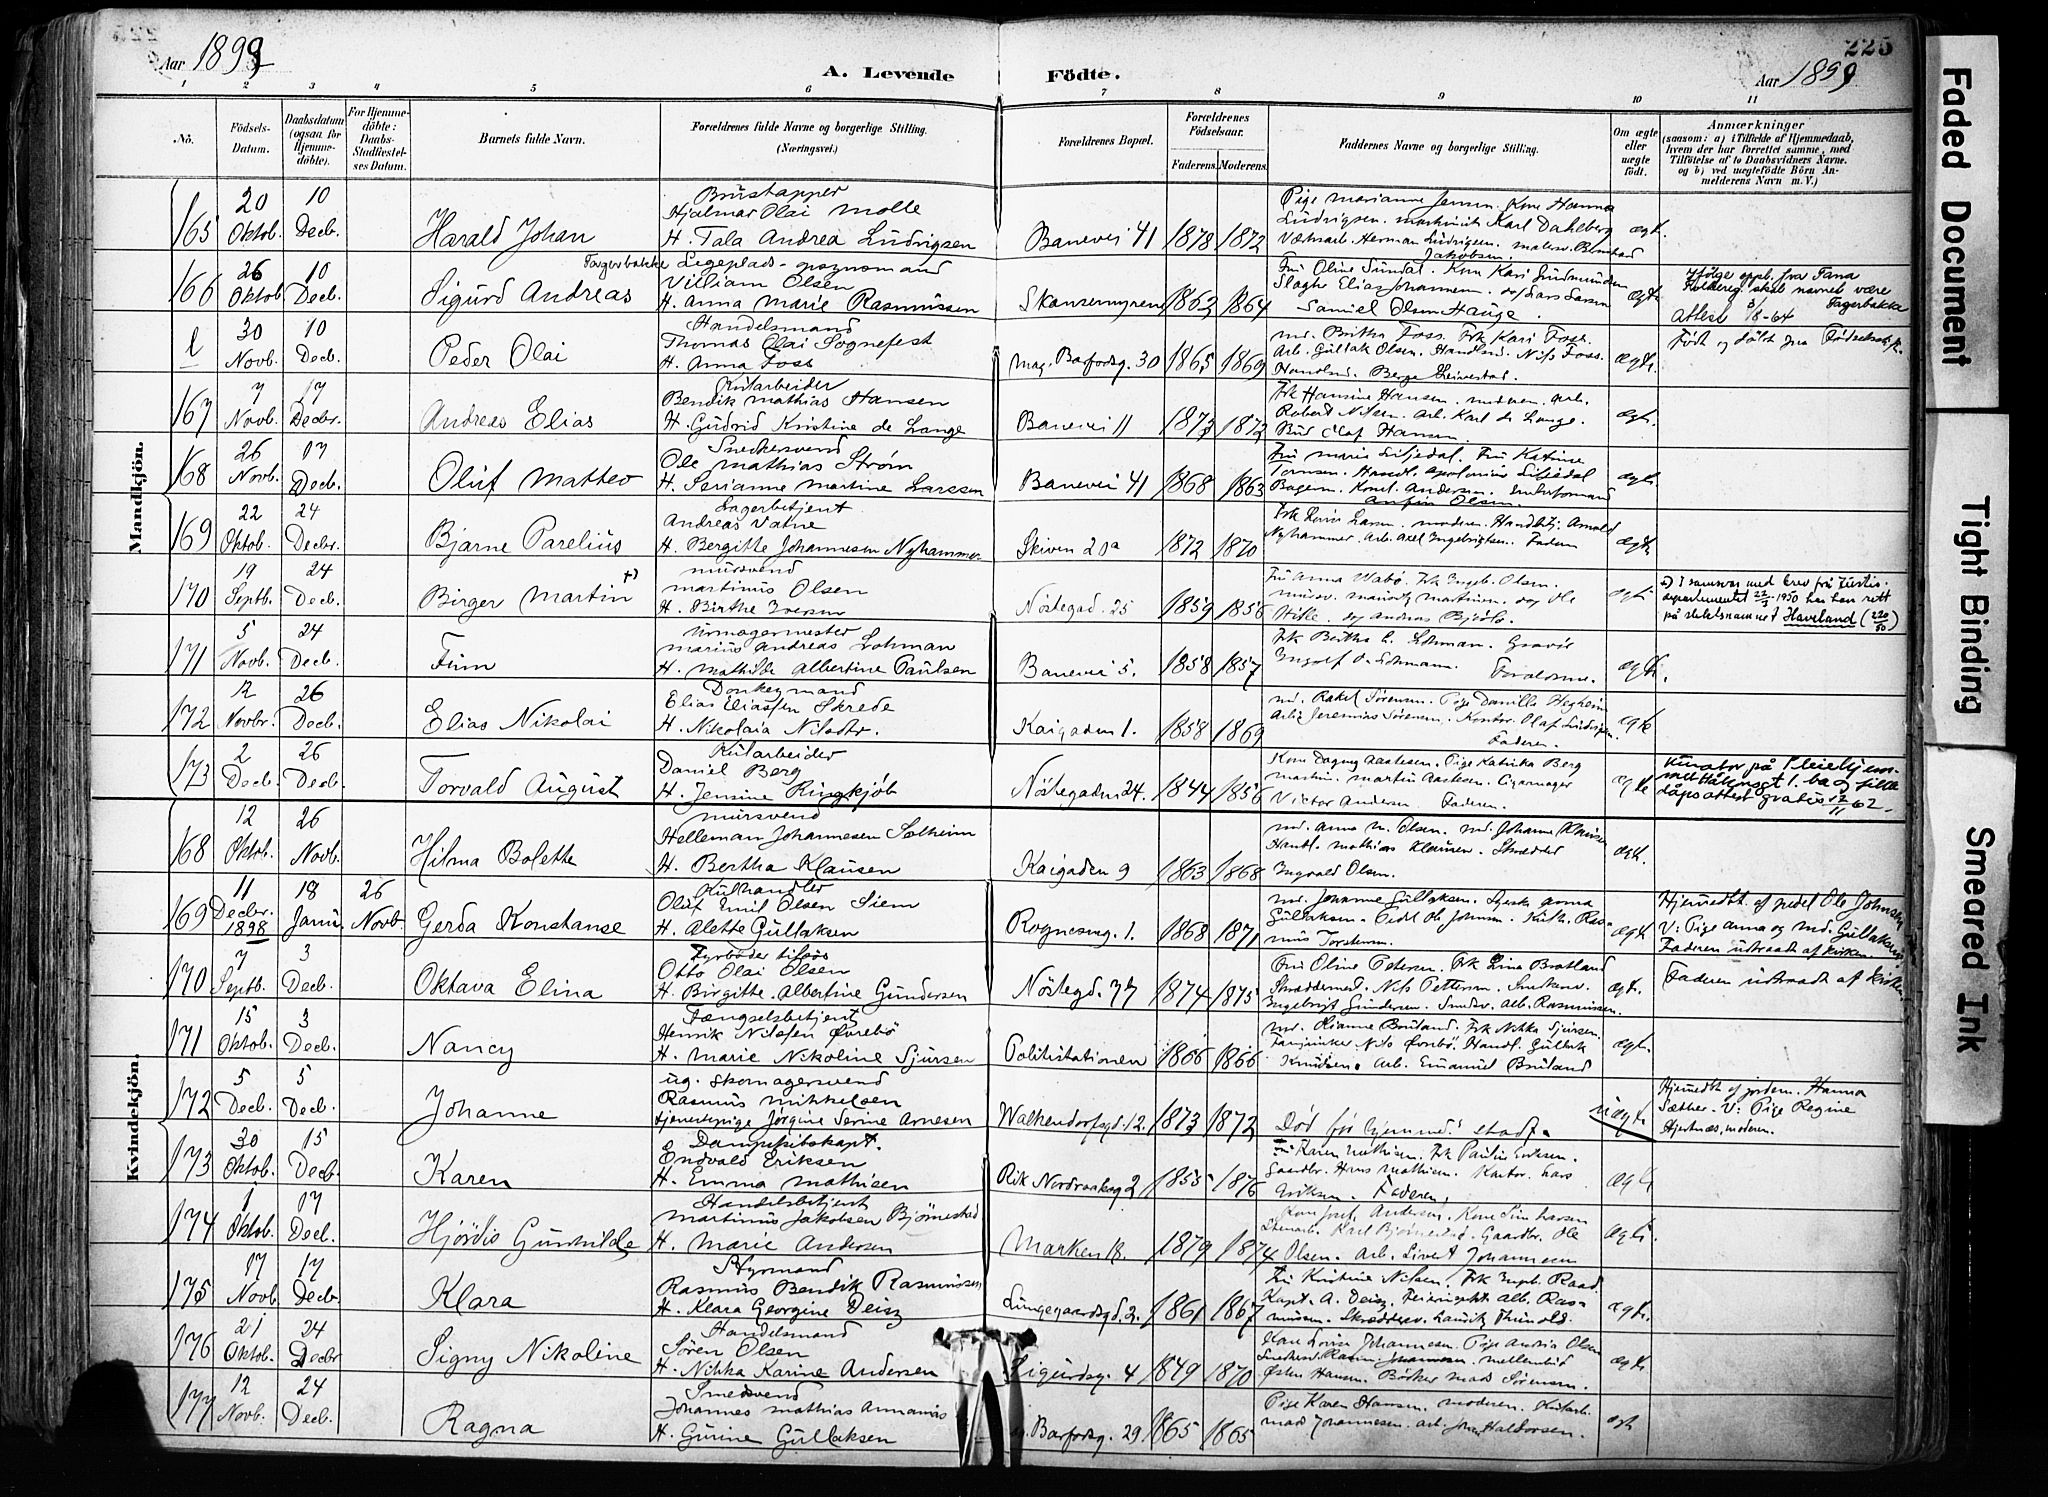 225
Aar 1899
A. Levende Födte.
Aar 1899
1 2 3 4 5 6 7 8 9 10 11
No.
Födsels-Datum.
Daabsdatum (ogsaa for Hjemme-döbte).
For Hjemme-döbte: Daabs-Stadfæstel-ses Datum.
Barnets fulde Navn.
Forældrenes fulde Navne og borgerlige Stilling.
(Næringsvei.)
Forældrenes Bopæl.
Forældrenes Födselsaar.
Faderens. Moderens.
Faddernes Navne og borgerlige Stilling.
Om ægte eller uægte födt.
Anmærkninger
(saasom: a) i Tilfælde af Hjemmedaab,
hvem der har forrettet samme, med
Tilföielse af to Daabsvidners Navne.
og b) ved uægtefödte Börn An-
melderens Navn m. V.)
Mandkjön.
165 20 Oktob. 10 Decb. Harald Johan
Brustapper
Hjalmar Olai Molle
H. Tala Andrea Ludvigsen
Banevei 41 1878 1872
Pige Marianne Jensen. Kone Hanna
Ludvigsen. Karl Dahlberg
Herman Ludvigsen.
Jakobsen. ægt.
166 26 Oktob. 10 Decb. Sigurd Andreas
Fagerbakke Legeplads-opsynsmand
Villiam Olsen
H. Anna Marie Rasmussen
Skansemyren 1863 1864
Fru Oline Sundal. Kone Kari Gudmundsen
Elias Johannesen. Lars Larsen
Samuel Olsen Hauge. ægte
Ifølge oppl. fra Fana
skal navnet være
Fagerbakke
Attest 3/8-64
l 30 Novb. 10 Decb. Peder Olai
Handelsmand
Thomas Olai Sognefest
H. Anna Foss
Mag. Barfodsg. 30 1865 1869
Md. Britha Foss. Frk Kari Foss.
Arb. Gullak Olsen. Handlsmd. Nils Foss.
Handlsmd. Berge Leivestad. ægte.
Født og døbt paa Fødselsst.
167 7 Novb. 17 Decbr. Andreas Elias
Kularbeider
Bendik Mathias Hansen
H. Gudrid Kristine de Lange
Banevei 11 1873 1872
Frk Hansine Hansen. Moderen. Arb.
Robert Nilsen. Arb. Karl de Lange.
Bud Olaf Hansen. ægt.
168 26 Novb. 17 Decb. Oluf Matteo
Snedkersvend
Ole Mathias Strøm
H. Serianne Martine Larssen
Banevei 41 1868 1863
Fru Marie Siljedal. Fru Katrine
Tornsen. Handl. Apolonius Siljedal
Bagerm. Konst. Andersen.
Olsen. ægt.
169 22 Oktob. 24 Decbr. Bjarne Parelius
Lagerbetjent
Andreas Vatne
H. Bergitte Johannesen Nyhammer
Skiven 20a 1872 1870
Frk Larsen. Moderen. Handlbtj. Arnold
Nyhammer. Arb. Axel Ingebrigtsen. Faderen ægte
170 19 Septb. 24 Decb. Birger Martin +)
Mursvend
Martinus Olsen
H. Birthe Iversen
Nöstegad. 25 1859 1856
Fru Anna Wabø. Frk Ingeb. Olsen. ægt.
+) I samsvar med brev frå Justis-
departementet 22/3-1950 har han rett
på slektsnamnet Haveland (220/50)
171 5 Novb. 24 Decb. Finn
Urmagermester
Marius Andreas Lohman
H. Mathilde Albertine Paulsen
Banevei 5. 1858 1857
Frk Bertha C. Lohmann. Gravör
Ingolf O. Lohmann. Forældrene. ægt.
172 12 Novbr. 26 Decb. Elias Nikolai
Donkeymand
Elias Eliassen Skrede
H. Nikolaia Nilsdtr.
Kaigaden 1. 1858 1869
Md. Rakel Sørensen. Pige Danille Hegheim
Arb. Jeremias Sørensen. Kontor. Olaf Ludvigsen.
Faderen. ægte
173 2 Decb. 26 Decb. Torvald August
Kularbeider
Daniel Berg
H. Jensine Ringkjöb
Nöstegaden 24. 1844 1856
Kone Dagny Aastesen. Pige Katrika Berg
Martin Aastesen. Cigarmager
Victor Andersen. Faderen. ægte
Kurator på Pleiehjem-
dåpsattest gratis 12/11 62.
Kvindekjön.
168 12 Oktob. 26 Novb. Hilma Bolette
Mursvend
Helleman Johannesen Solheim
H. Bertha Klausen
Kaigaden 9 1863 1868
Md. Anna M. Olsen. Md. Johanne Klausen
Handl. Mathias Klausen. Skrædder
Ingvald Olsen. ægt.
169 11 Decbr. 1898 18 Janu. 26 Novb Gerda Konstanse
Kulhandler
Oluf Emil Olsen Siem
H. Alette Gullaksen
Rognesmg. 1. 1868 1871
Md. Johanne Gullaksen. Anna
Gullaksen. Pedel Ole Johnsen. Ras-
mus Torstensen. ægt
Hjemedbt. af pedel Ole Johnsen
V: Pige Anna og Md. Gullaksen
Faderen udtraadt af kirken
170 7 Septb. 3 Decb. Oktava Elina
Fyrbøder tilsøs
Otto Olai Olsen
H. Birgitte Albertine Gundersen
Nöstegd. 77 1874 1875
Fru Oline Petersen. Frk Lina Bratland
Skræddermest. Nils Pettersen.
Ingebrigt Gundersen. Alb. Rasmussen. ægt.
Faderen udtraadt af kirken.
171 15 Oktob. 3 Decb. Nancy
Fængselsbetjent
Henrik Nilssen Övrebö
H. Marie Nikoline Sjursen
Politistationen 1866 1866
Md. Brüland. Frk Nikka Sjursen.
Nils Övrebö. Handl. Gullak
Knudsen. Arb. Emanuel Brüland ægt.
172 5 Decb. 5 Decb. Johanne
Ug. Skomagersvend
Rasmus Mikkelsen
Tjenestepige Jørgine Serine Arnesen
Walkendorfsgd. 12. 1873 1872
Død før hjemmed. stadf. uægte
Hjemedbt af jordem. Hanna
Sæther. V: Pige Regine
Hjertnæs, moderen.
173 30 Oktob. 15 Decb. Karen
Dampskibskapt.
Endvald Eriksen
H. Emma Mathisen
Rik. Nordraaksg 2 1855 1876
Fru Karen Mathisen. Frk Paulin Eriksen.
Gaardbr. Hans Mathisen. Kontor. Lars
Eriksen. Faderen. ægt
174 1 Oktob. 17 Decb. Hjördis Gunhilde
Handelsbetjent
Martinus Jakobsen Bjørnestad
H. Marie Andersen
Marken 18. 1879 1874
Kone Josef. Andersen. Kone Sina Larsen
Karl Bjørnestad. Gaardbr. Ole
Olsen. Arb. Sivert Johannesen ægt.
175 17 Novb 17 Decb. Klara
Styrmand
Rasmus Bendik Rasmussen
H. Klara Georgine Deisz
Lungegaardsgd. 2. 1861 1867
Fru Kristine Nilsen. Frk Ingeb. Raad.
Kapt. A. Deisz. Alb. Ras-
mussen. Skræddersv. Lauritz Thunold. ægt.
176 21 Oktob. 24 Decbr Signy Nikoline
Handelsmand
Sören Olsen
H. Nikka Karine Andersen
Sigurdsg. 4 1849 1870
Kone Lovise Johannesen. Pige Andrea Olsen
Østen Hansen. Bödker Mads Sørensen. ægt.
177 12 Novb. 24 Decb. Ragna
Smedsvend
Johannes Mathias Annanias
H. Gurine Gullaksen
Barfodsg. 29 1865 1865
Pige Karen Hansen. Moderen. Kularb.
Mads Johannesen. Arb. Haldorsen. ægt
Faded Document
Tight Binding
Smeared Ink